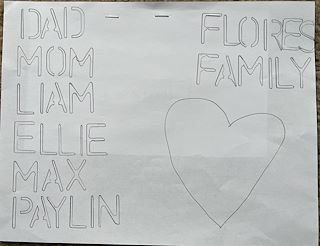 DAD
MOM
LIAM
ELLIE
MAX
PAYLIN
FLORES
FAMILY